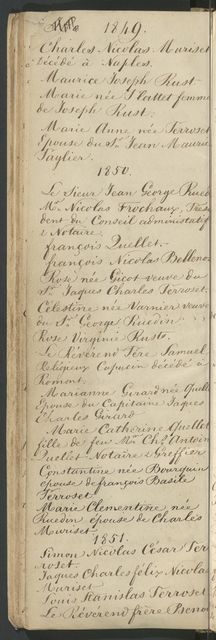 1849.
Charles Nicolas Muriset
décédé à Naples.
Maurice Joseph Rust
Marie née Plattet femme
de Joseph Rust.
Marie Anne née Perroset
Epouse du Sr. Jean Maurice
Taglier.
1850.
Le Sieur Jean George Rued
Mr. Nicolas Frochaux, Prési
dent du Conseil administatif
& Notaire.
françois Quellet.
françois Nicolas Bellenot
Rose née Gicot veuve du
Sr. Jaques Charles Perroset.
Célestine née Varnier veuve
du Sr. George Ruedin
Rose Virginie Rust.
Le Révérend Père Samuel
Religieux Capucin décédé à
Romont.
Marianne Girard née Quellet
Epouse du Capitaine Jaques
Charles Girard
Marie Catherine Quellet
fille de feu Mr. Chs. Antoine
Quellet Notaire & Greffier
Constantine née Bourquin
épouse de françois Basile
Perroset
Marie Clementine née
Ruedin épouse de Charles
Muriset.
1851.
Simon Nicolas César Per
roset.
Jaques Charles félix Nicolas
Muriset
Louis Stanislas Perroset
Le Révérend frère